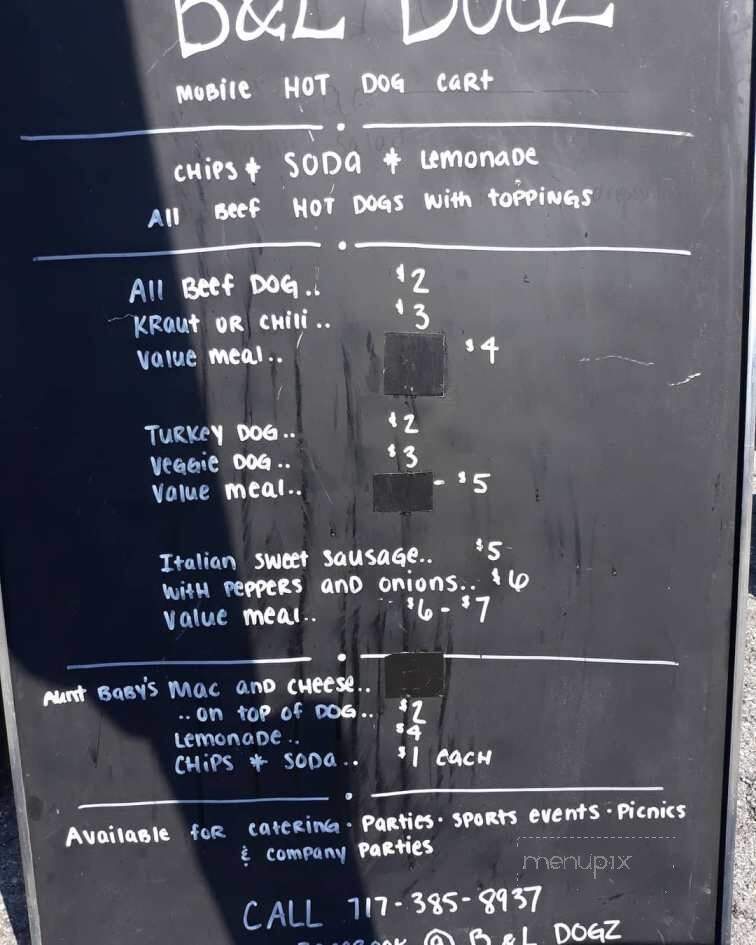 B&L DOGZ
MOBILE HOT DOG CART
CHIPS * SODA * LEMONADE
All Beef HOT DOGS With TOPPINGS
All Beef DOG.. $2
KRAUT OR CHili.. $3
Value meal.. $4
TURKEY DOG.. $2
Veggie DOG.. $3
Value meal.. - $5
Italian sweet sausage.. $5
With PEPPERS and onions.. $6
Value meal.. $6 - $7
Aunt BaBY'S Mac and CHeese..
..on top of DOG.. $2
Lemonade.. $4
CHiPS * SODa.. $1 eacH
Available for catering · Parties · sports events · Picnics
& company Parties
menupix
CALL 717-385-8937
FaceBOOK @ B & L DOGZ